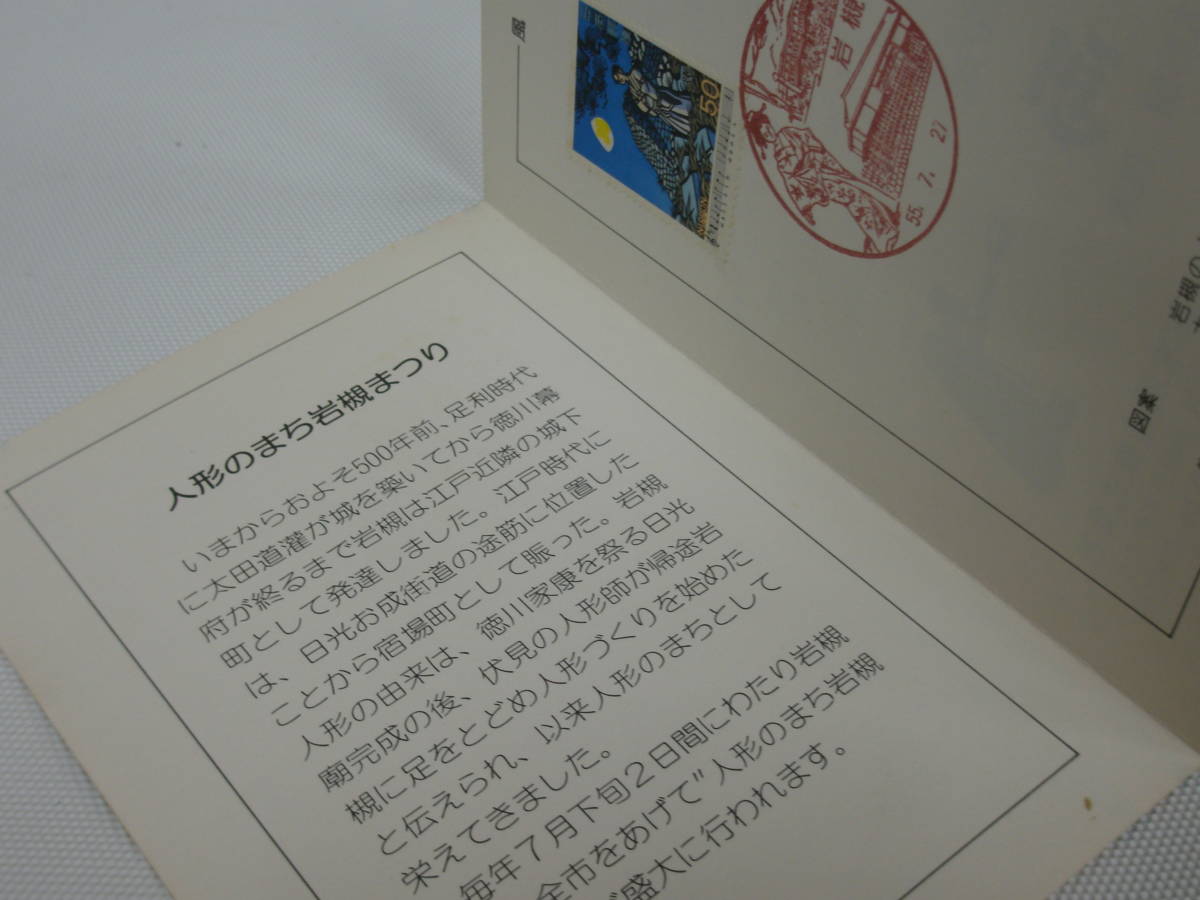 人形のまち岩槻まつり
いまからおよそ500年前、足利時代
に太田道灌が城を築いてから徳川幕
府が終るまで岩槻は江戸近隣の城下
町として発達しました。江戸時代に
は、日光お成街道の途筋に位置した
ことから宿場町として賑った。岩槻
人形の由来は、徳川家康を祭る日光
廟完成の後、伏見の人形師が帰途岩
槻に足をとどめ人形づくりを始めた
と伝えられ、以来人形のまちとして
栄えてきました。
毎年7月下旬2日間にわたり岩槻
全市をあげて"人形のまち岩槻
盛大に行われます。
風
50
岩槻
55.7.27
図案
岩槻の